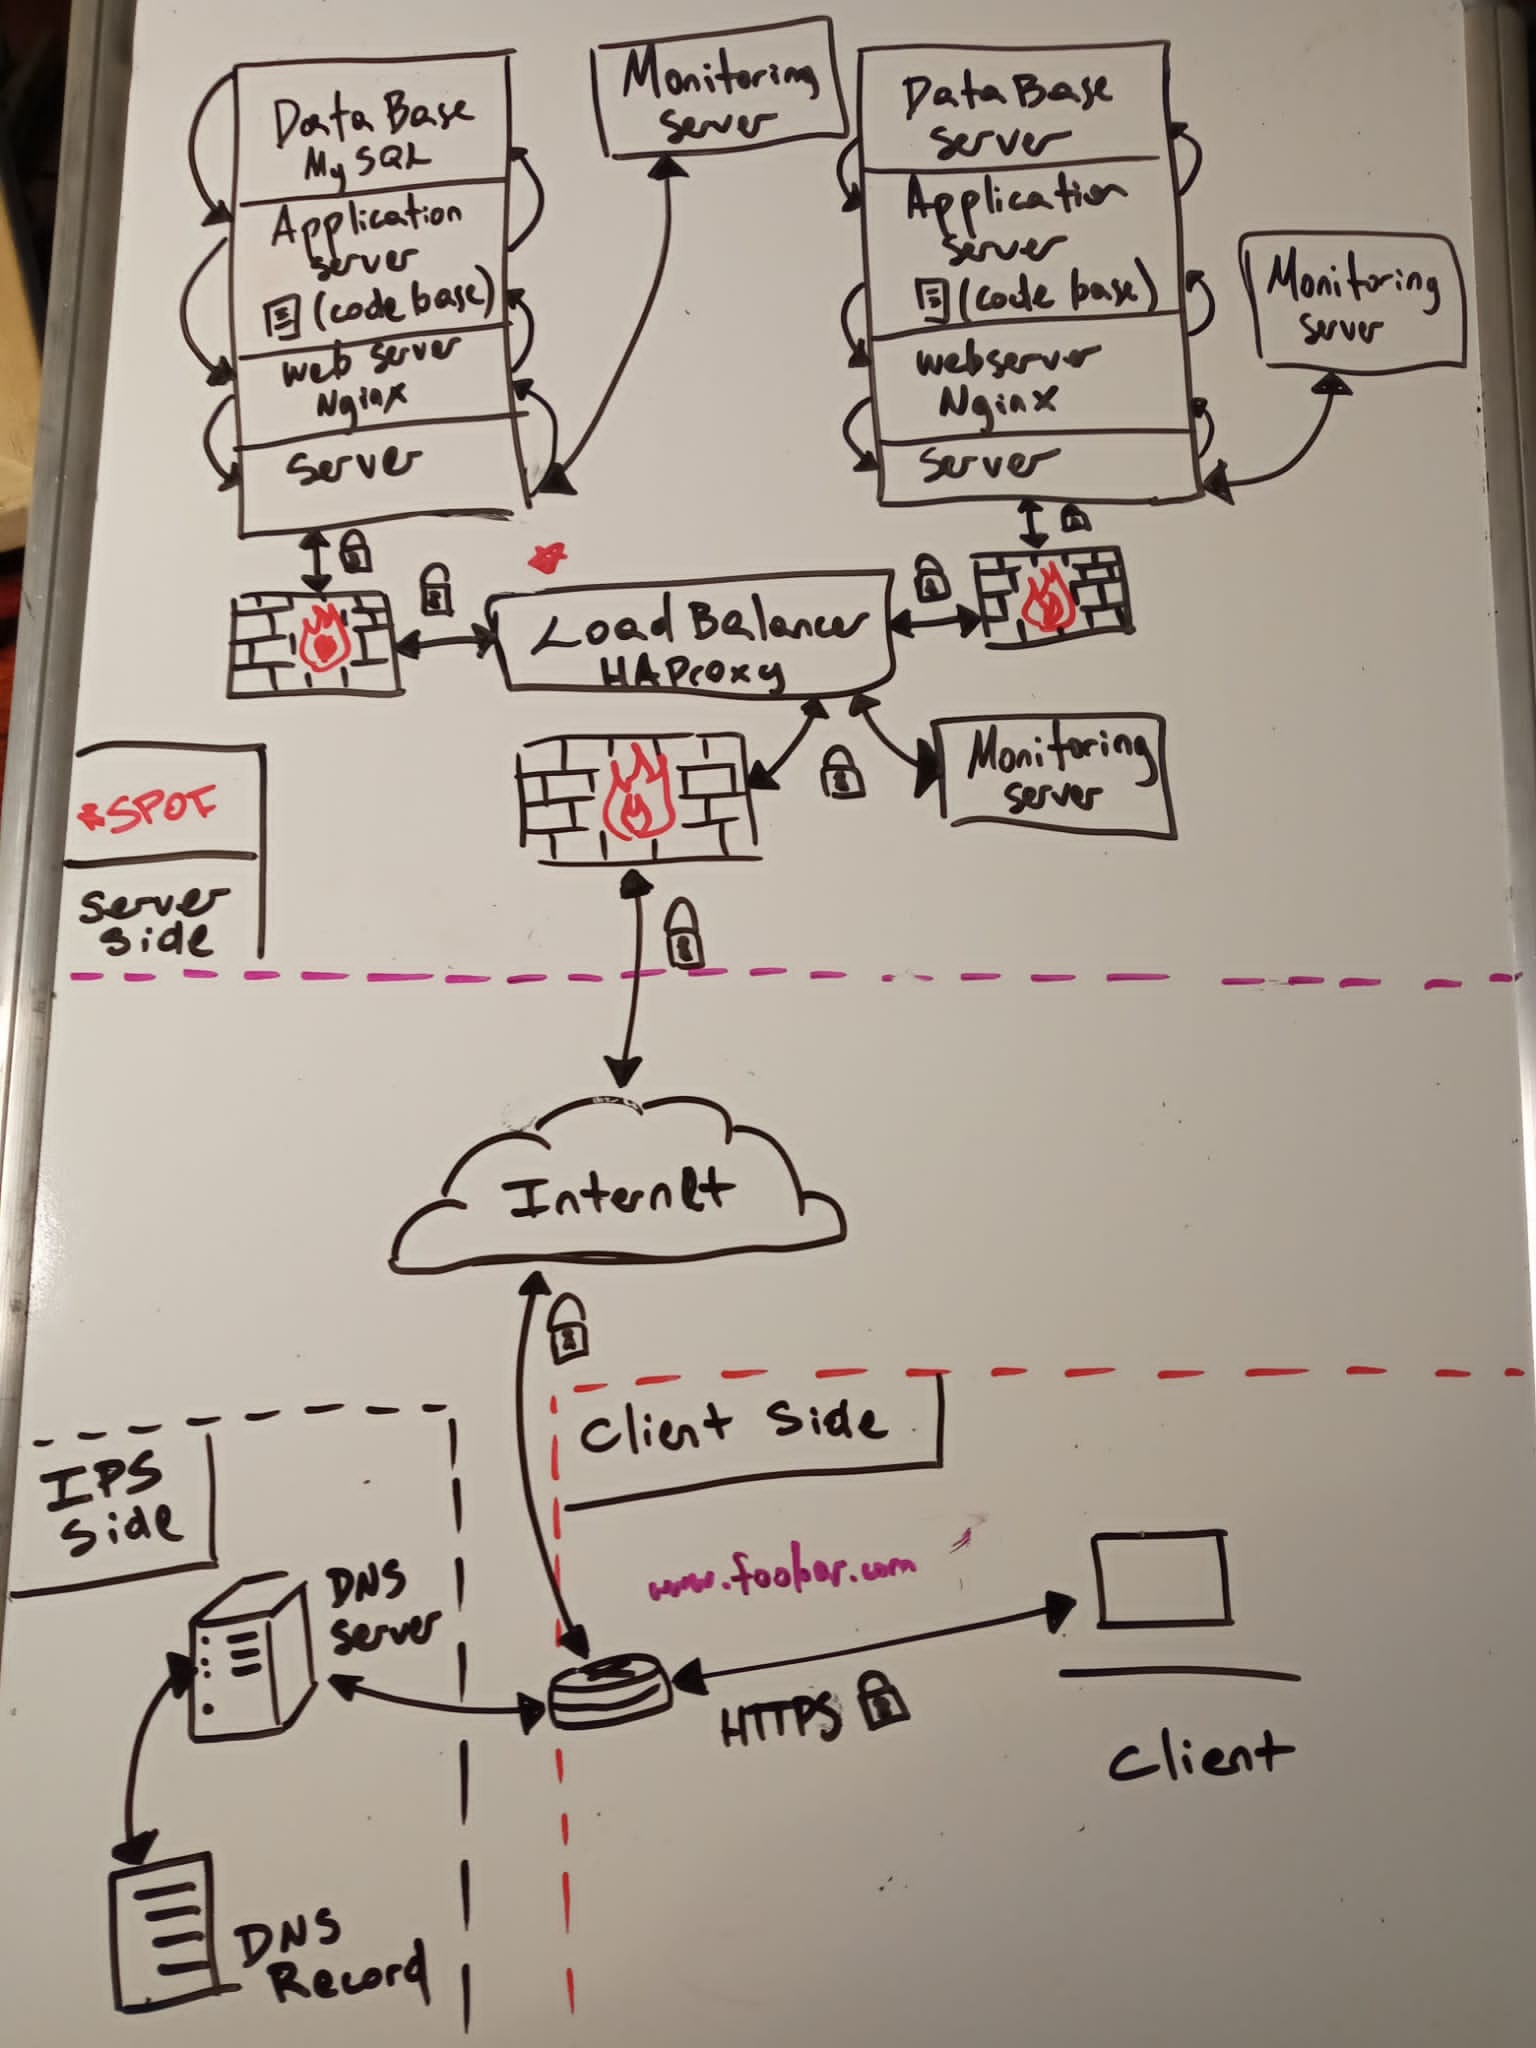 Data Base
MySQL
Application
server
(code base)
web server
Nginx
Server
Monitoring
server
Data Base
server
Application
server
(code base)
webserver
Nginx
Server
Monitoring
server
Load Balancer
HAProxy
Monitoring
server
*SPOF
Server
side
Internet
Client Side
IPS
Side
DNS
Server
www.foobar.com
HTTPS
Client
DNS
Record